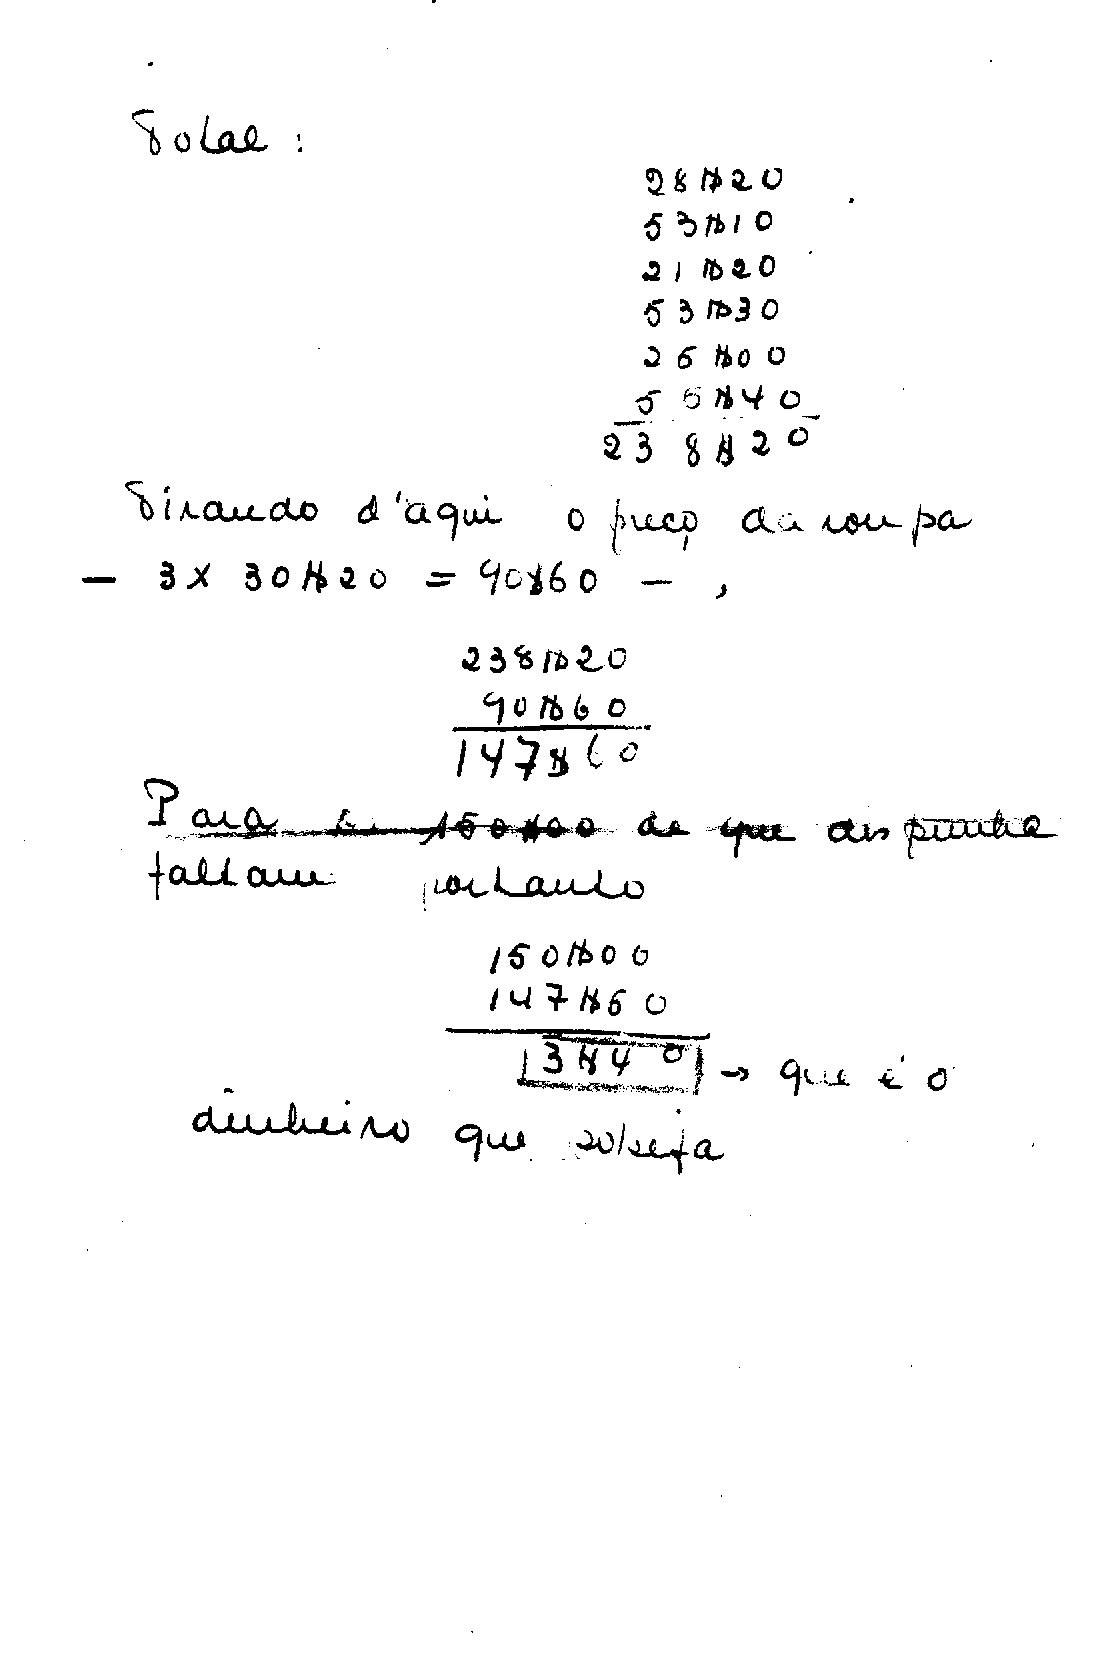 Total:
28$20
53$10
21$20
53$30
26$00
56$40
238$20
Tirando d'aqui o preço da roupa
— 3 x 30$20 = 90$60 — ,
238$20
90$60
147$60
Para 150$00 de que dispunha
faltam portanto
150$00
147$60
3$40 → que é o
dinheiro que sobeja